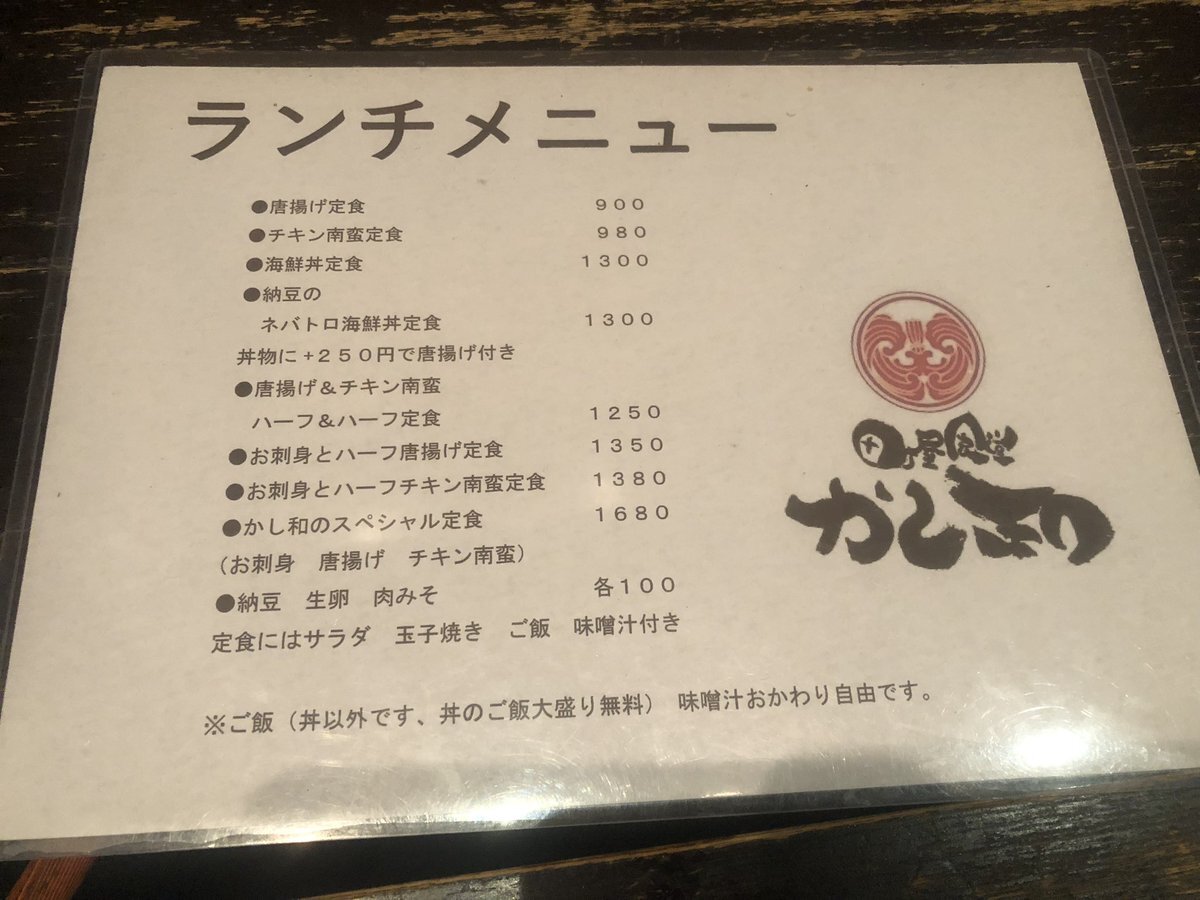 ランチメニュー
●唐揚げ定食 ９００
●チキン南蛮定食 ９８０
●海鮮丼定食 １３００
●納豆の
ネバトロ海鮮丼定食 １３００
丼物に＋２５０円で唐揚げ付き
●唐揚げ＆チキン南蛮
ハーフ＆ハーフ定食 １２５０
●お刺身とハーフ唐揚げ定食 １３５０
●お刺身とハーフチキン南蛮定食 １３８０
●かし和のスペシャル定食 １６８０
（お刺身　唐揚げ　チキン南蛮）
●納豆　生卵　肉みそ 各１００
定食にはサラダ　玉子焼き　ご飯　味噌汁付き
※ご飯（丼以外です、丼のご飯大盛り無料）　味噌汁おかわり自由です。